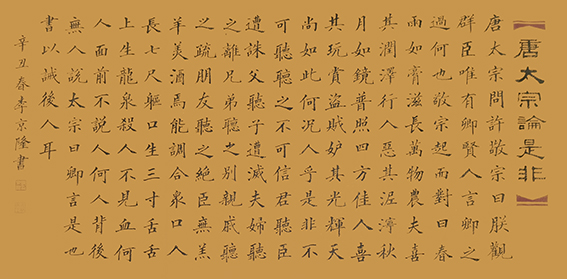 唐太宗論是非
唐太宗問許敬宗曰朕觀
群臣唯有卿賢人言卿之
過何也敬宗起而對曰春
雨如膏滋長萬物農夫喜
其潤澤行人惡其泥濘秋
月如鏡普照四方佳人喜
其玩賞盜賊妒其光輝天
尚如此何況人乎是非不
可聽聽之不可信君聽臣
遭誅父聽子遭滅夫婦聽
之離兄弟聽之別親戚聽
之疏朋友聽之絕臣無羔
羊美酒焉能調合衆口人
長七尺軀口生三寸舌舌
上生龍泉殺人不見血何
人面前不說人何人背後
無人說太宗曰卿言是也
書以誡後人耳
辛丑春李京隆書